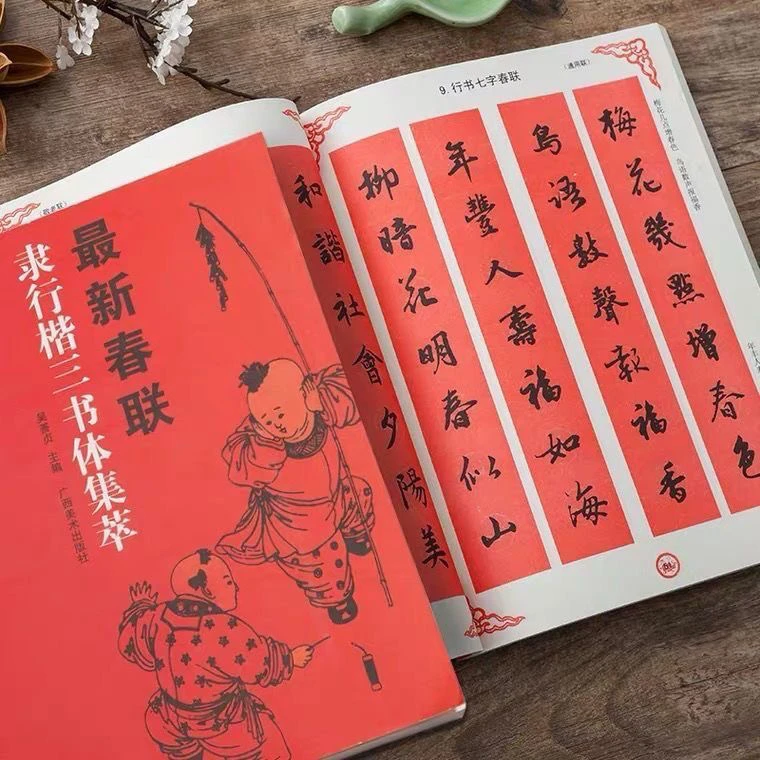 最新春联
隶行楷三书体集萃
主编 广西美术出版社
(敬老联)
9.行书七字春联
(通用联)
梅花幾點增春色
鳥語數聲報福香
年豐人壽福如海
柳暗花明春似山
和諧社會夕陽美
梅花几点增春色 鸟语数声报福香
年丰人